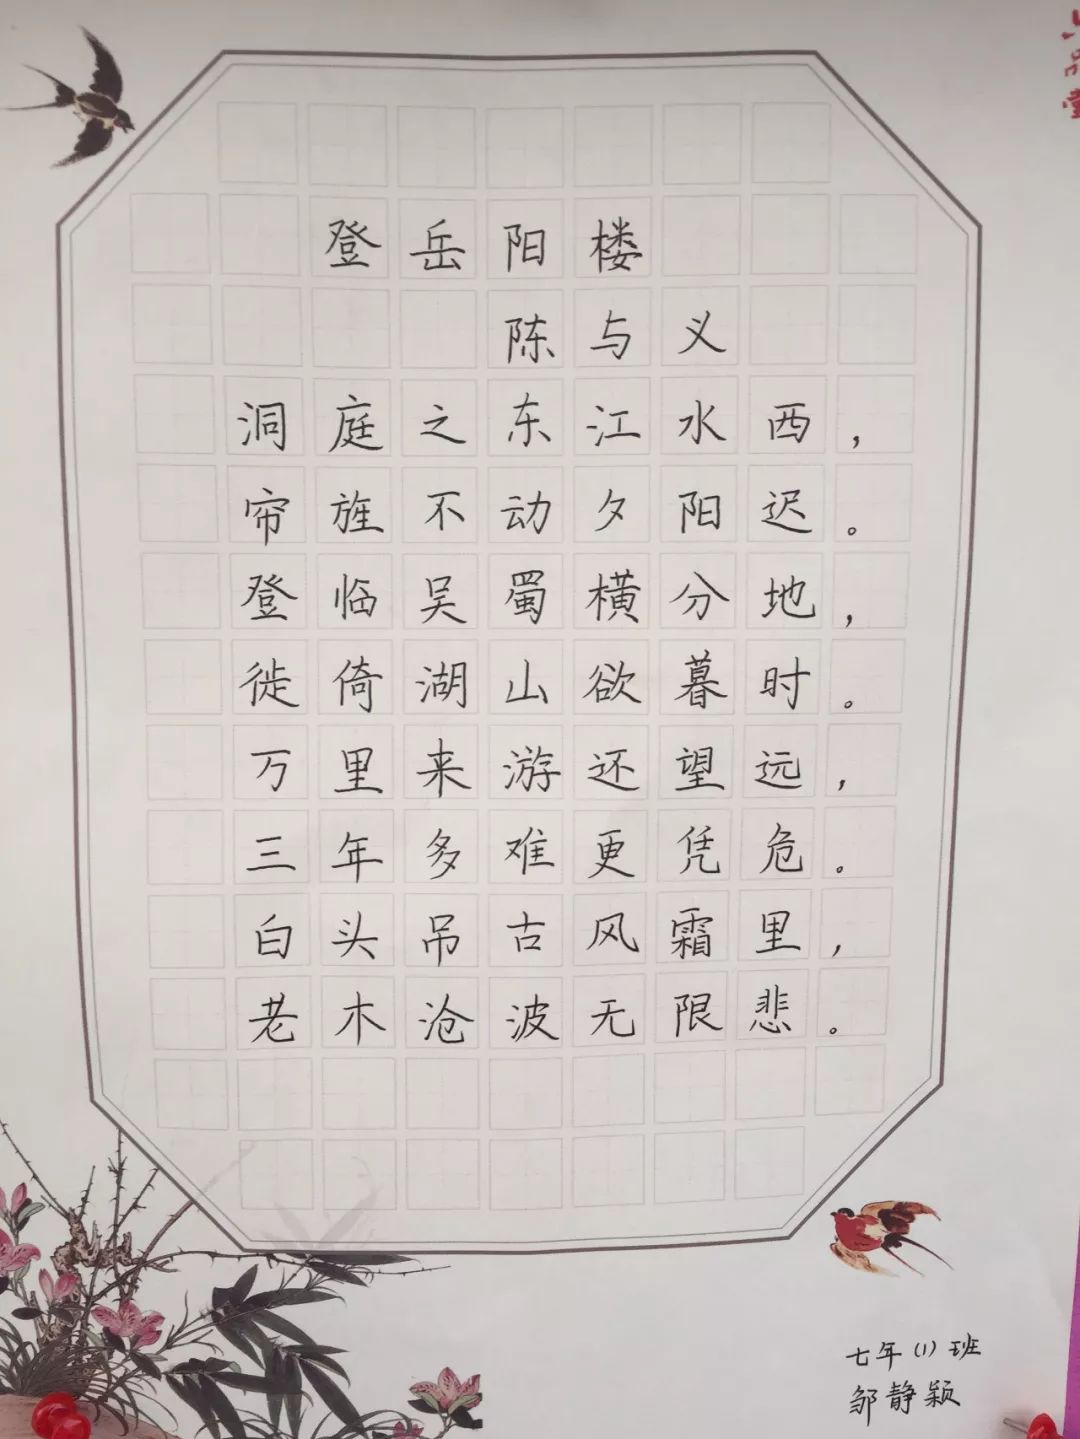 登岳阳楼
陈与义
洞庭之东江水西，
帘旌不动夕阳迟。
登临吴蜀横分地，
徙倚湖山欲暮时。
万里来游还望远，
三年多难更凭危。
白头吊古风霜里，
老木沧波无限悲。
七年(1)班
邹静颖